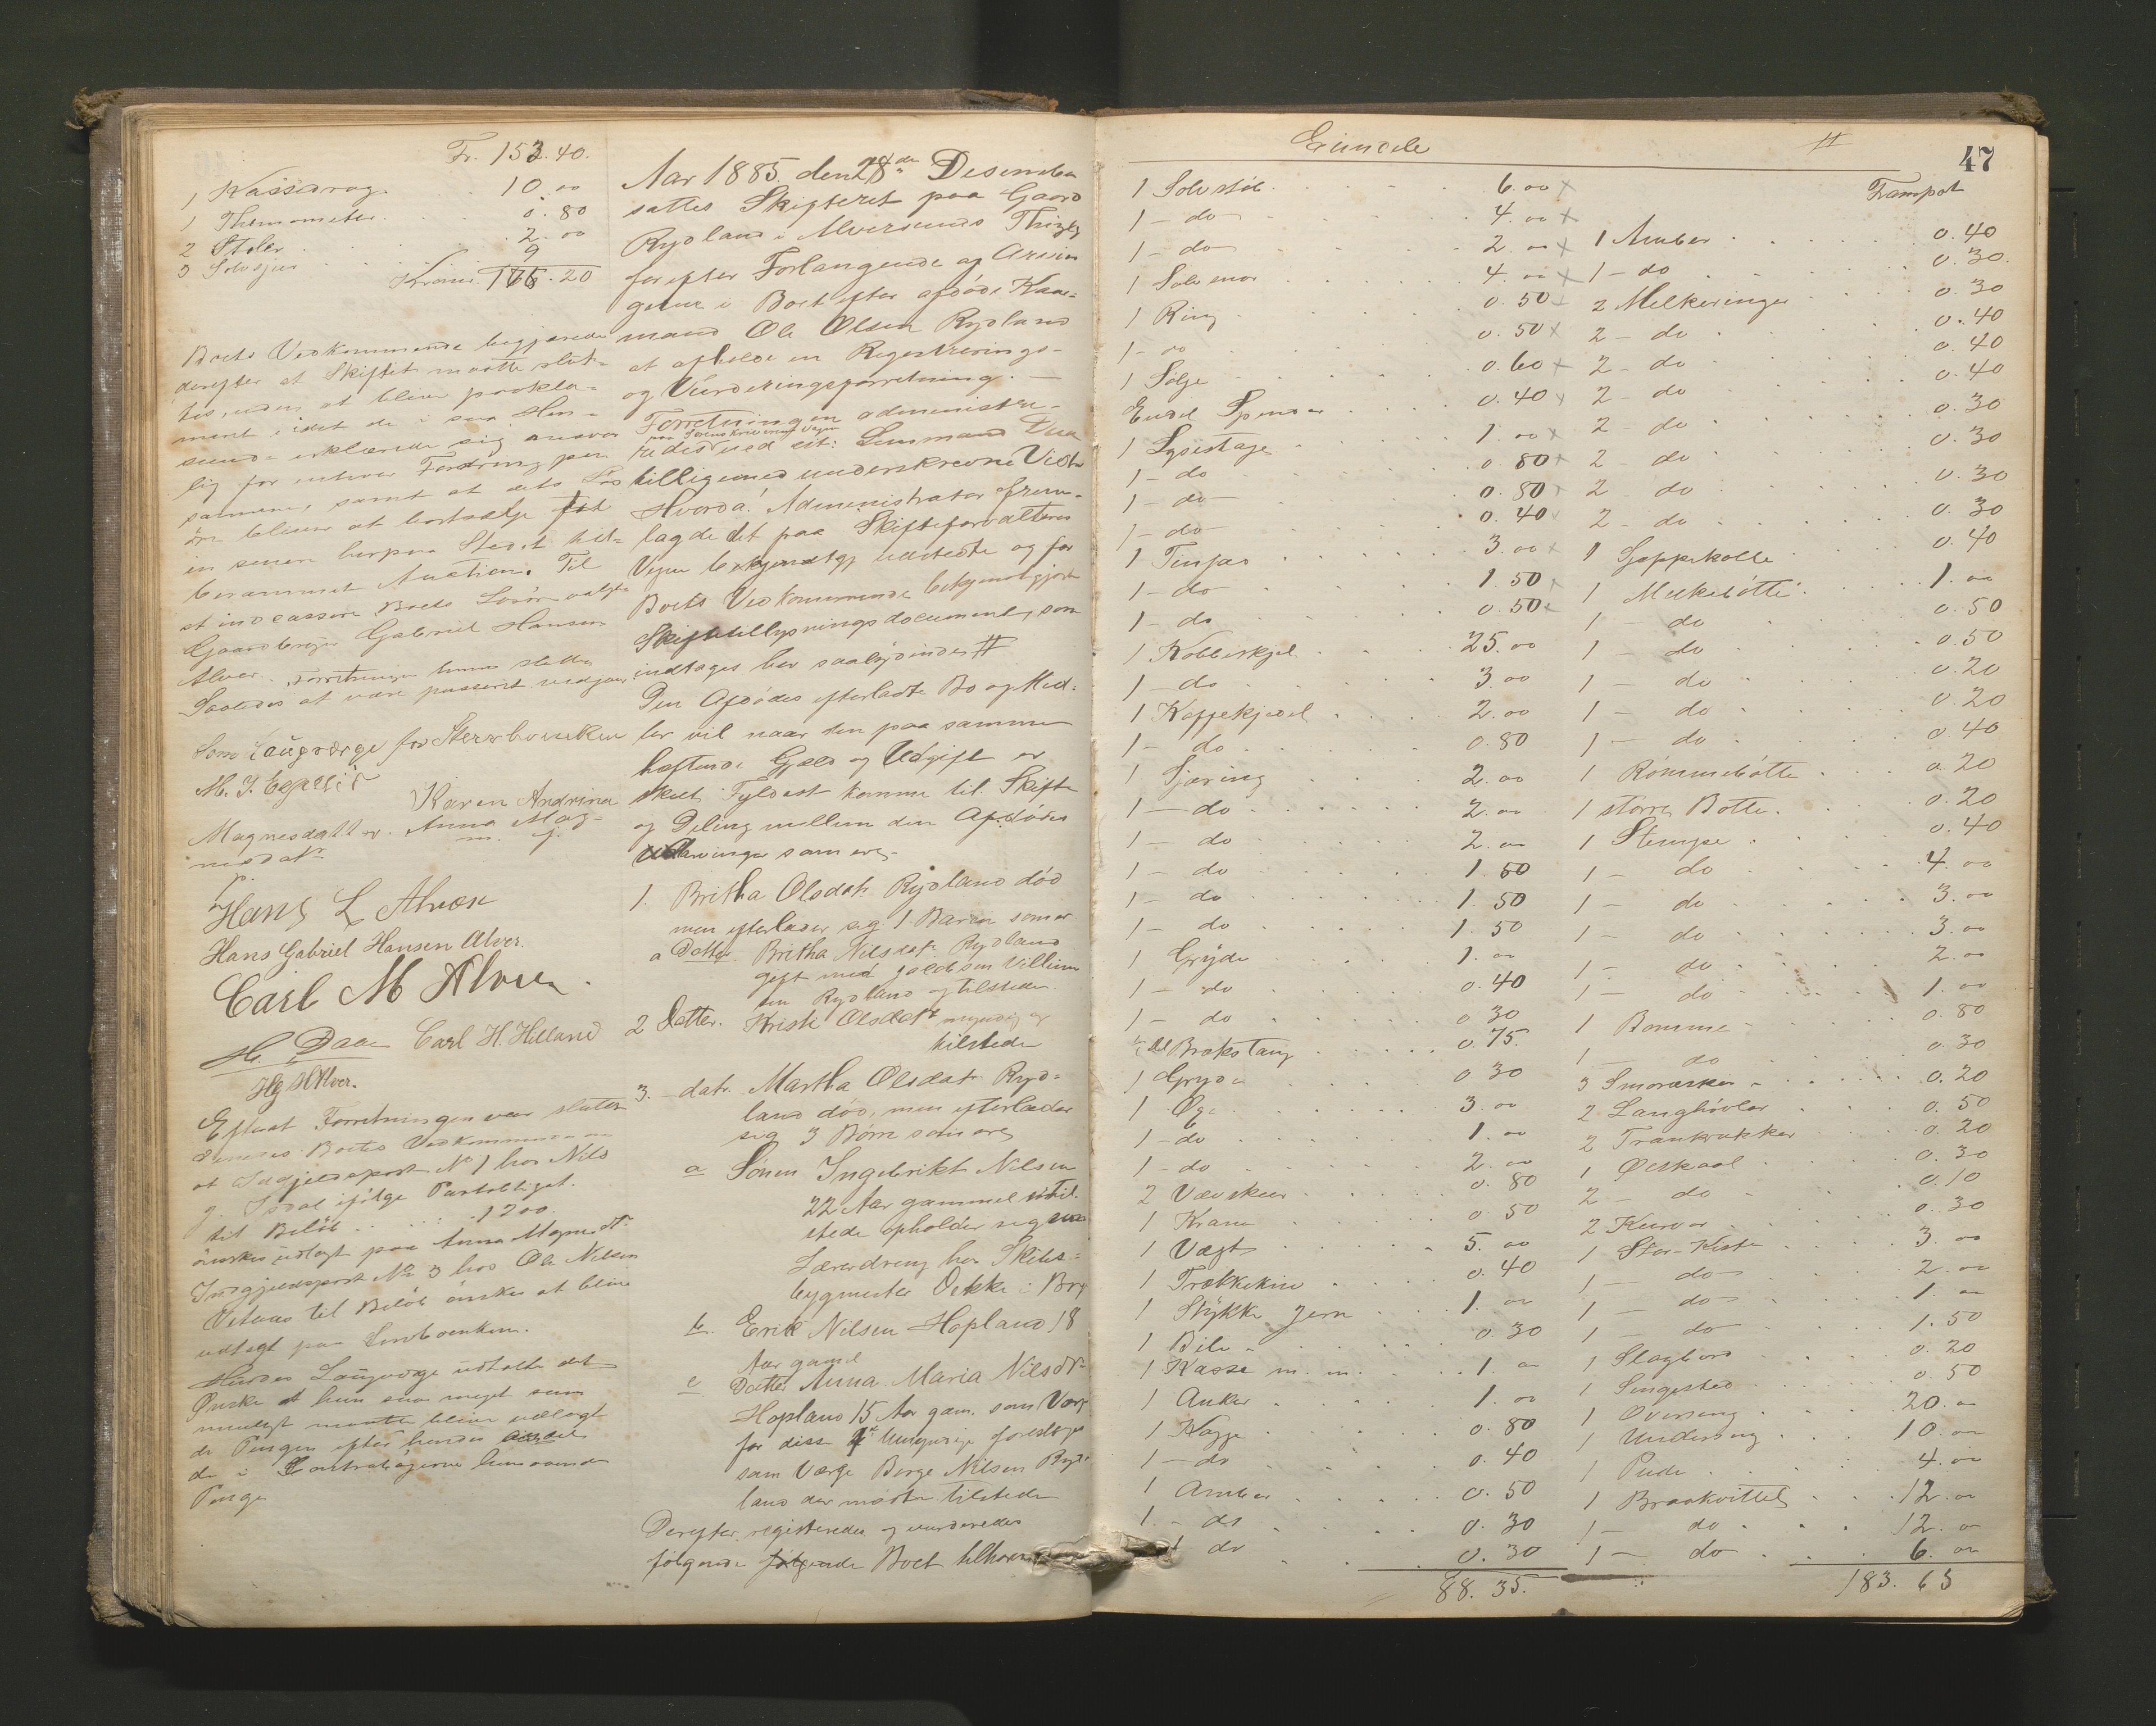 Fr. 153.40.
1 Kassedrog 10.00
1 Themometer 0.80
2 Stoler 2.00
3 Solvsjeer 9
Kroner 166.20
Boets Vedkommende begjærede
derefter at Skiftet maatte slut=
tes, uden at blive prokla=
meret, idet de i saa Hen=
seende erklærede sig ansvar
lig for enhver Fordring paa
sammen, samt at dets Lös
öre bliver at bortsælge ved
en senere herpaa Stedet bil=
berammet Auction. Til
at indcassere Boets Lösöre valgte
Gaardbruger Gabriel Hansen
Alver. Forretningen hermed sluttet
Saaledes at være passeret vedgaaes
Som Laugværge for Sterbboenken
M. J. Egelid
Karen Andrina
Magnesdatter. Anna Mag=
nesdatr m. f.
p.
Hans L Alver
Hans Gabriel Hansen Alver.
Carl M Alver.
H. Daae Carl H. Helland
Hg H Alver.
Efterat Forretningen var sluttet
Boets Vedkommende
at Indgjeldspost No 1 hos Nils
J. Isdal ifölge Pantobliget.
til Belöb . . . . 1200.
önskes udlagt paa Anna Magnesdtr
Indgjeldspost No 3 hos Ole Nilsen
Vetaas til Belöb önskes at blive
udlagt paa Sterboenken.
Hendes Laugværge udtalte det
Önske at hun saa meget som
muligt maatte blive udlagt
de Penger efter hendes andel
de i Contrabögerne henværende
Penge
Aar 1885. den 28de Desember
sattes Skifteret paa Gaard
Rydland i Alversunds Thinglag
for efter Forlangende af Arvin
gerne i Boet efter afdöde Kaar=
mand Ole Olsen Rydland
at afholde en Regestrerings-
og Vurderingsforretning. —
Forretningen administre-
paa Sorenskriverens Vegne
redes ved cst: Lensmand Daae
tilligemed underskrevne Vidner
Hvorda! Administrator frem-
lagde det paa Skifteforvalterens
Vegne bekjendtgj udstedte og for
Boets Vedkommende bekjendtgjorte
Skiftetillysningsdocument, som
indtages her saalydende #
Den Afdödes efterladte Bo og Mid=
ler vil naar den paa samme
heftende Gjæld og Udgift er
skeet Fyldest komme til Skifte
og Deling mellem den Afdödes
Udarvinger som ere,
1. Britha Olsdatr Rydland död
men efterlader sig 1 Barn som er
a Datter Britha Nilsdatr Rydland
gift med Jacob sen Villum
sen Rydland og tilstede.
2 Datter. Kristi Olsdatr myndig og
tilstede
3. — datr. Martha Olsdatr Ryd=
land död, men efterlader
sig 3 Börn som ere,
a Sönen Ingebrikt Nilsen
22 Aar gammel
stede opholder sig som
Læredreng hos Skibs=
bygmester Dekke i Berg
b. Erik Nilsen Hopland 18
Aar gaml
c Datter Anna Maria Nilsdr.
Hopland 15 Aar gam. som Værge
for disse Umyndige foreslages
som Værge Börge Nilsen Ryd=
land der mödte tilstede
Derefter registeredes og vurderedes
fölgende fölgende Boet tilhörende
Eiendele #
47
1 Solvstöb 6.00 x
1 - do 4.00 x
1 - do 2.00 x
1 Solv mor 4.00 x
1 Ring 0.50 x
1 - do 0.50 x
1 Solje 0.60 x
Endel Spender 0.40 x
1 Lysestage 1.00 x
1 - do 0.80 x
1 - do 0.80 x
1 - do 0.40 x
1 Tinfad 3.00 x
1 - do 1.50 x
1 - do 0.50 x
1 Kobberkjel 25.00
1 - do 3.00
1 Kaffekjedel 2.00
1 - do 0.80
1 Tjæring 2.00
1 - do 2.00
1 - do 2.00
1 - do 1.50
1 - do 1.50
1 - do 1.50
1 Gryde 1.00
1 - do 0.40
1 - do 0.30
Brokstang 0.75.
1 Gryde 0.30
1 Öx 3.00
1 - do 1.00
1 - do 2.00
2 Vævskeer 0.80
1 Krane 0.50
1 Vægt 5.00
1 Trækkekiv 0.40
1 Stykke Jern 1.00
1 Bile 0.30
1 Kasse m. m. 1.00
1 Anker 1.00
1 Kagge 0.80
1 - do 0.40
1 Ambar 0.50
1 - do 0.30
1 do 0.30
88.35.
Transpot
1 Ambar 0.40
1 - do 0.30.
2 Melkeringer 0.30
2 - do 0.40
2 - do 0.40
2 - do 0.40
2 - do 0.30
2 - do 0.30
2 do 0.30
2 - do 0.30
1 Gappekolle 0.40
1 Melkebötte 1.00
1 - do 0.50
1 - do 0.50
1 - do 0.20
1 - do 0.20
1 - do 0.40
1 Römmebötte 0.20
1 större Botte. 0.20
1 Stempe 0.40
1 - do 4.00
1 - do 3.00
1 - do 3.00
1 - do 2.00
1 - do 1.00
1 Bomme 0.80
1 - do 0.30
3 Smöræsker 0.20
2 Langhövler 0.50
2 Trankrukker 0.20
1 Ölskaal 0.30
2 - do 0.10
2 Kurver 0.30
1 Stor-Kiste 3.00
1 - do 2.00
1 - do 1.00
1 - do 1.50
1 Slagbord 0.20
1 Sengested 0.50
1 Overseng 20.00
1 Underseng 10.00
1 Pude 4.00
1 Braakvittel 12.00
1 - do 12.00
1 - do 6.00
183.65